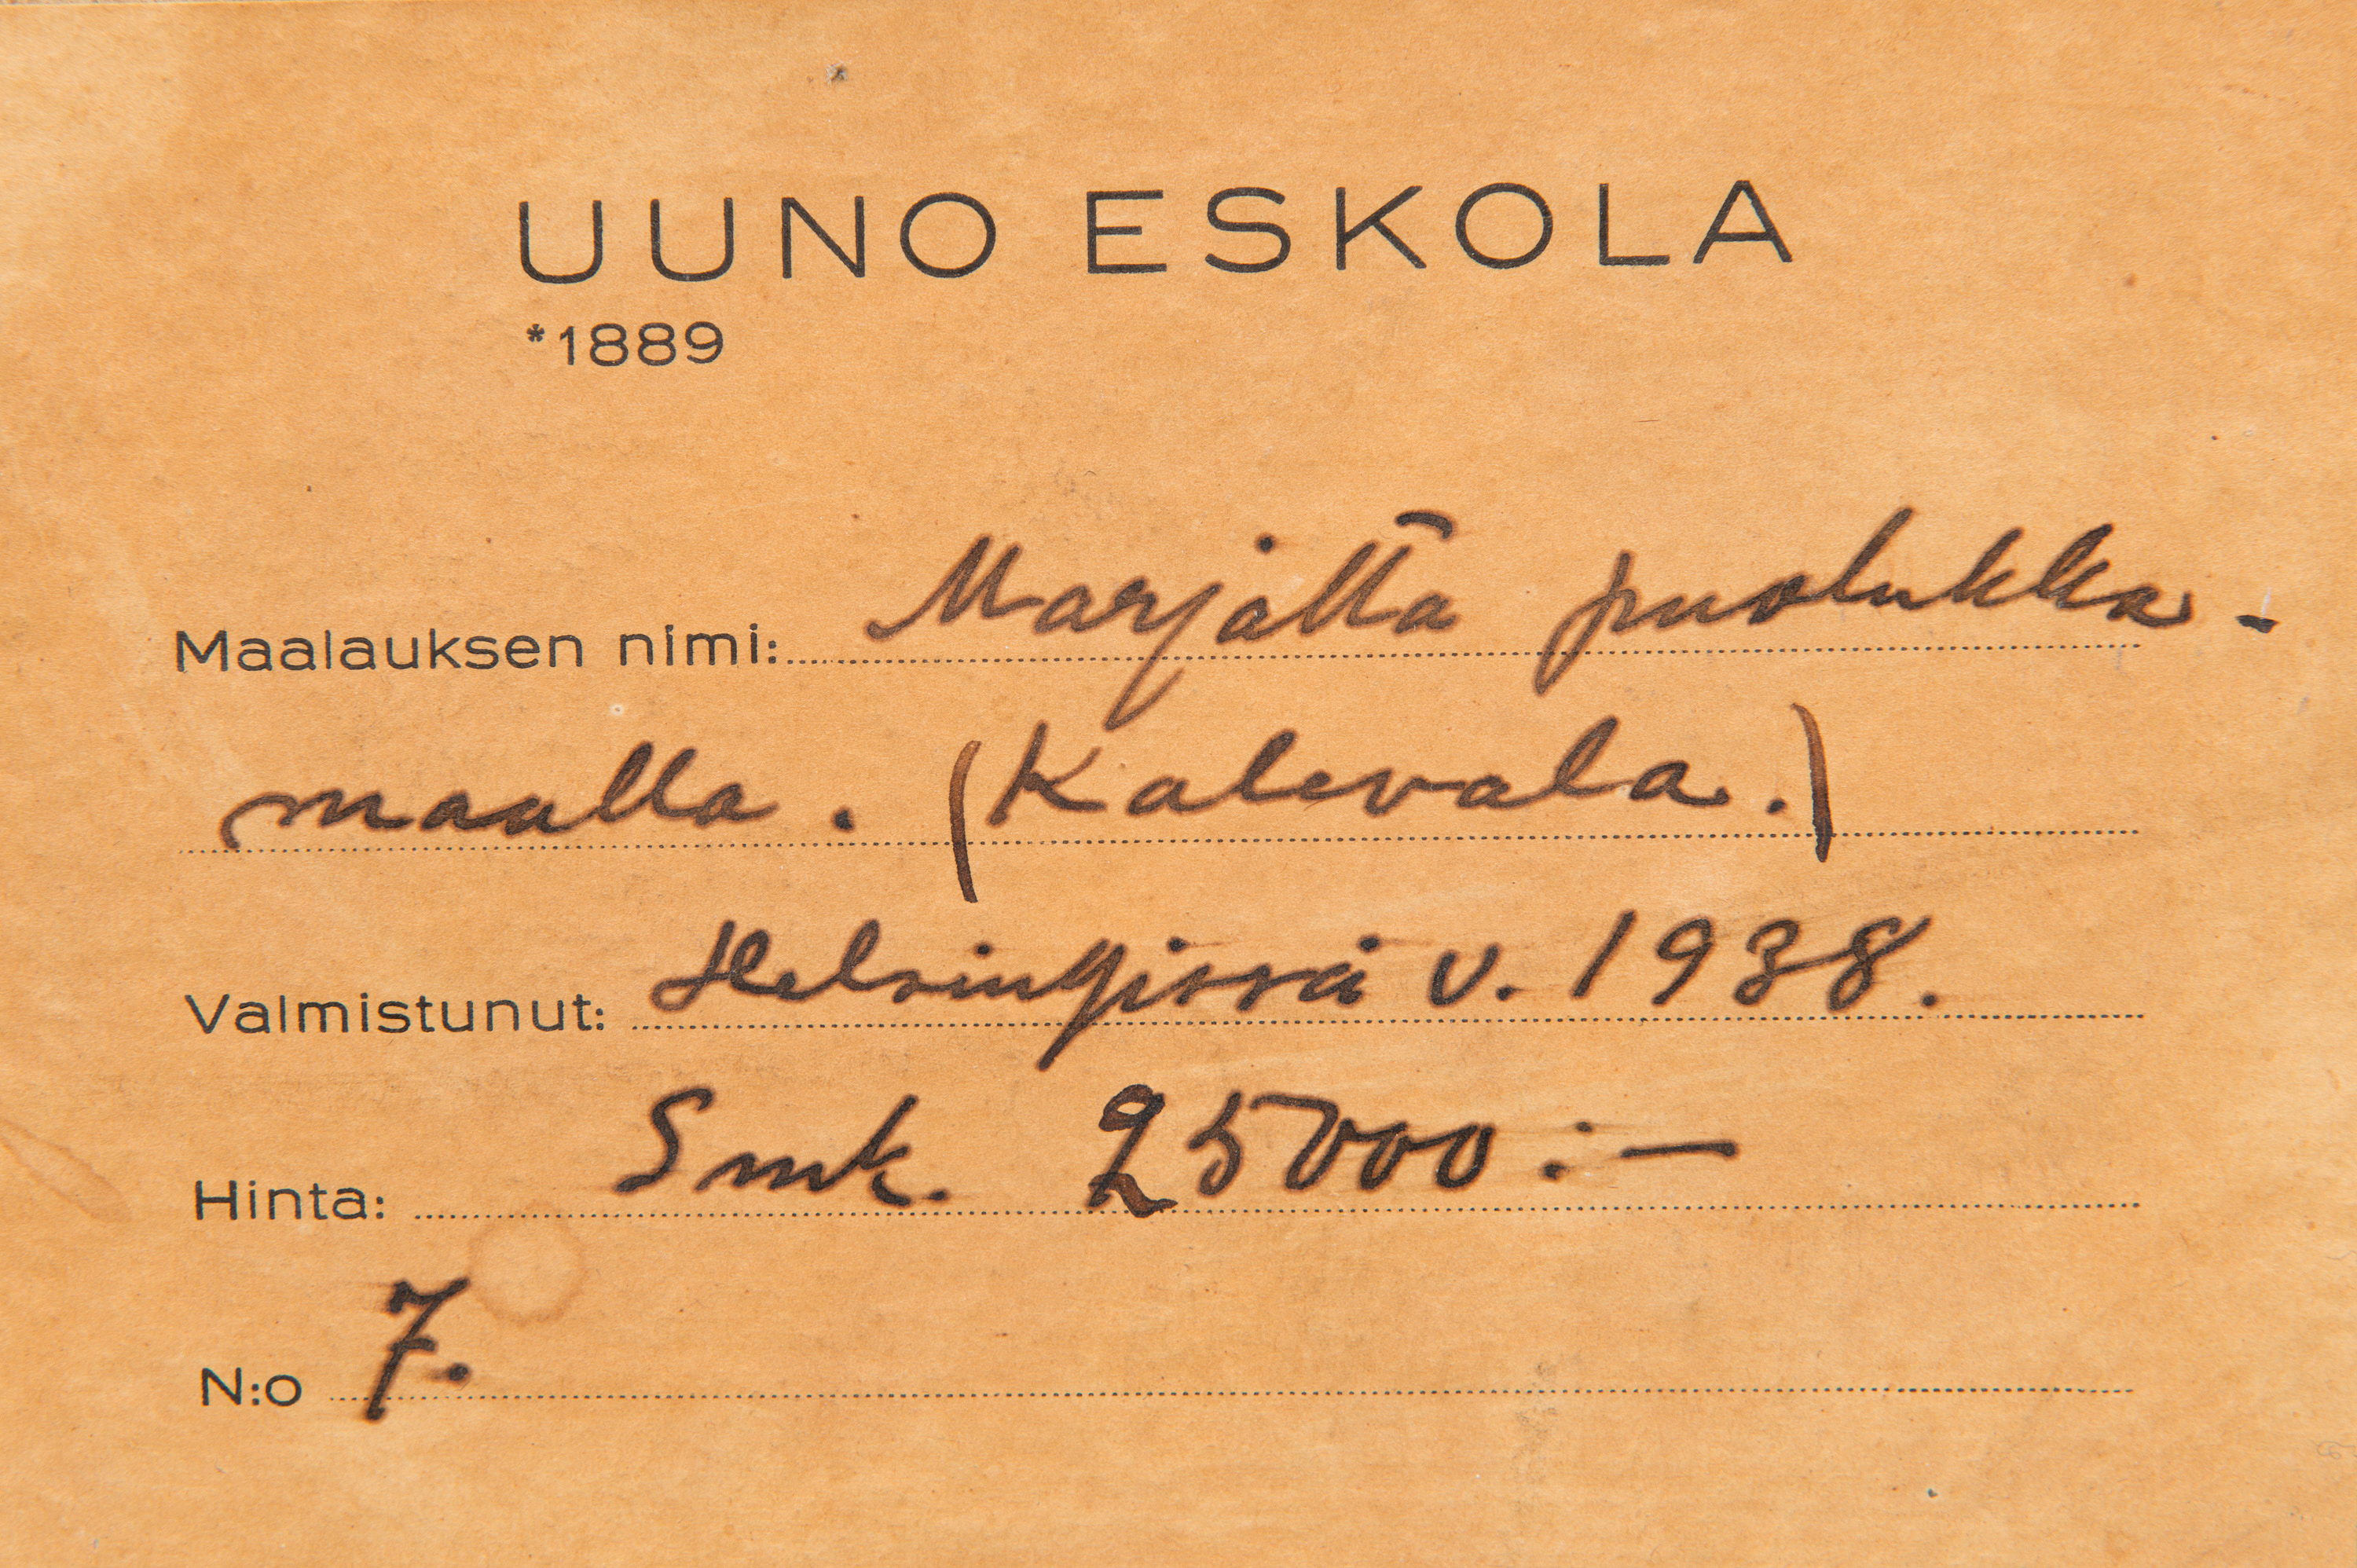 UUNO ESKOLA
*1889
Maalauksen nimi: Marjatta puolukka-
maalla. (Kalevala.)
Valmistunut: Helsingissä v. 1938.
Hinta: Smk. 25000:—
N:o 7.